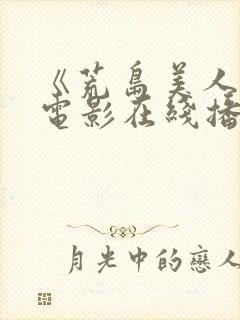 《荒島美人
電影在綫播
月光中的戀人